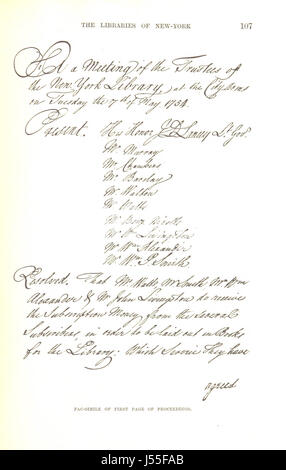 THE LIBRARIES OF NEW-YORK 107
At a Meeting of the Trustees of
the New York Library, at the City Arms
on Tuesday the 7th of May 1754.
Present. His Honor Lt Govr
Mr Murray
Mr Chambers
Mr Barclay
Mr Walton
Mr Watts
Mr Benj. Nicoll
Mr Wm Livingston
Mr Wm Alexander
Mr Wm P. Smith
Resolved. That Mr Watts Mr Smith Mr Wm
Alexander & Mr John Livingston do receive
the Subscription Money from the several
Subscribers, in order to be laid out in Books
for the Library: Which Service they have
agreed
FAC-SIMILE OF FIRST PAGE OF PROCEEDINGS.
alamy
Image ID: J55FAB
www.alamy.com